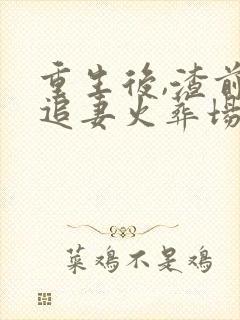 重生後,渣前
追妻火葬場
菜鸡不是鸡